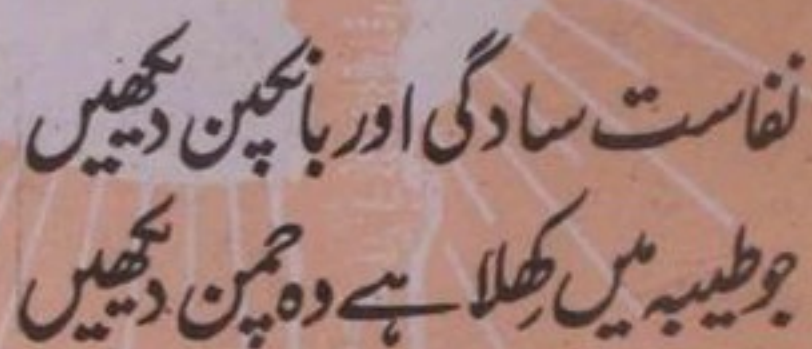 نفاست سادگی اور بانکپن دیکھیں
جو طیبہ میں کِھلا ہے وہ چمن دیکھیں